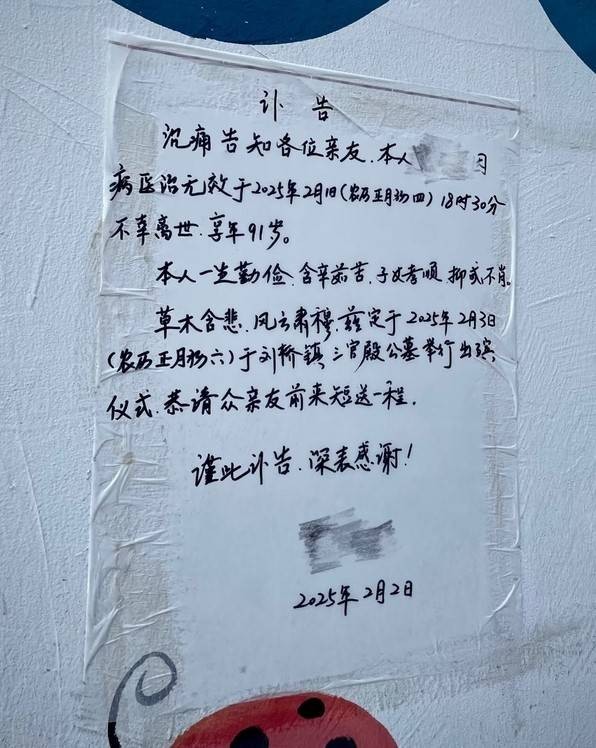 讣告
沉痛告知各位亲友，本人 因
病医治无效于2025年2月1日(农历正月初四)18时30分
不幸离世，享年91岁。
本人一生勤俭，含辛茹苦，子女孝顺，抑或不肖。
草木含悲，风云肃穆，兹定于2025年2月3日
(农历正月初六)于刘桥镇三官殿公墓举行出殡
仪式，恭请众亲友前来短送一程。
谨此讣告，深表感谢！
2025年2月2日